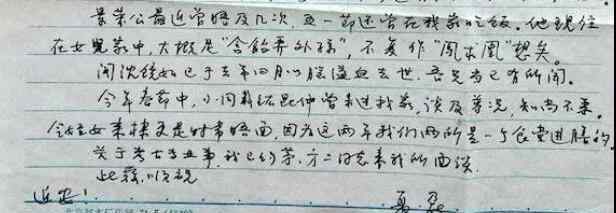 景荣公最近曾晤及几次,五一节还曾在我家吃饭。他现住
在女儿家中,大概是“含饴弄外孙”,不复作“凤求凰”想矣。
闻沈统如已于去年四月以脑溢血去世,吾兄当已有所闻。
今年春节中,小周和阮延仲曾来过我家,谈及尊况,知尚不恶。
令女来棣更是时常晤面,因为这两年我们两所是一个食堂进膳的
关于考古专业事,我已约茅、方二同志来我所面谈。
此致,顺祝
近安!
夏鼐